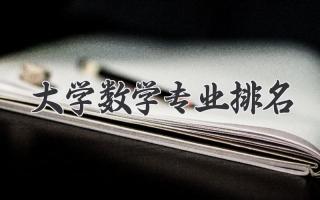 大学数学专业排名